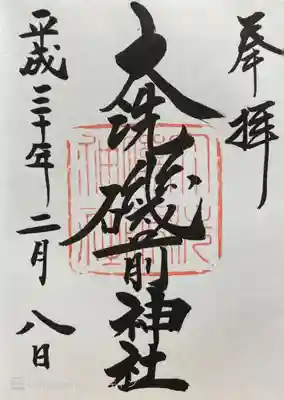 奉拝
大洗磯前神社
平成三十年二月八日